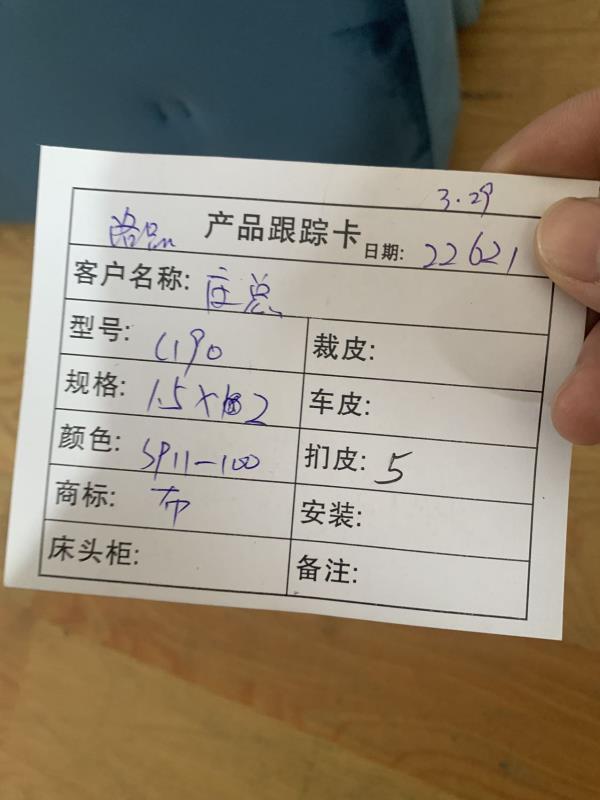 3.29
产品跟踪卡 日期: 22621
客户名称: 庄总
型号: C190 裁皮:
规格: 1.5X 2 车皮:
颜色: SP11-100 扪皮: 5
商标: 布 安装:
床头柜: 备注: